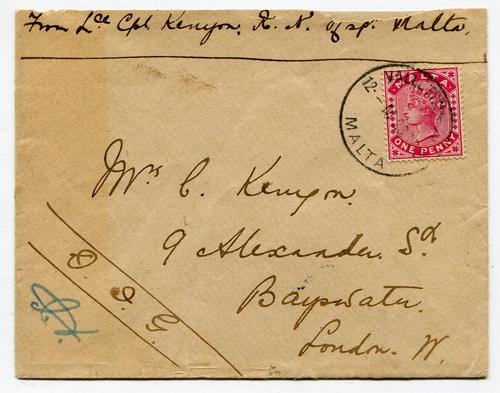 From Lce Cpl. Kenyon. R. N. Malta.
VALLETTA
12-
MALTA
MALTA
ONE PENNY
Mrs C. Kenyon.
9 Alexander St
Bayswater.
London. W.